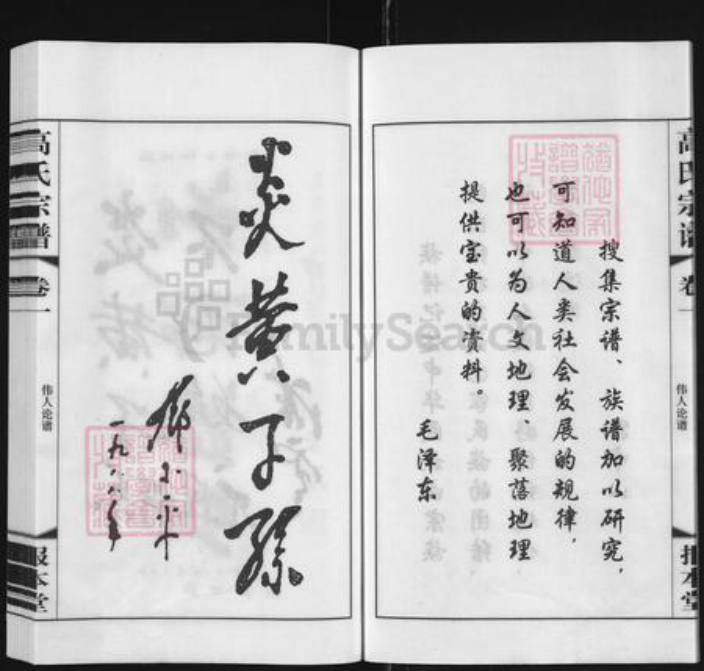 高氏宗谱
卷一
伟人论谱
报本堂
搜集宗谱、族谱加以研究，
可知道人类社会发展的规律，
也可以为人文地理、聚落地理
提供宝贵的资料。
毛泽东
炎黄子孙
邓小平
一九八八年
高氏宗谱
卷一
伟人论谱
报本堂
FamilySearch